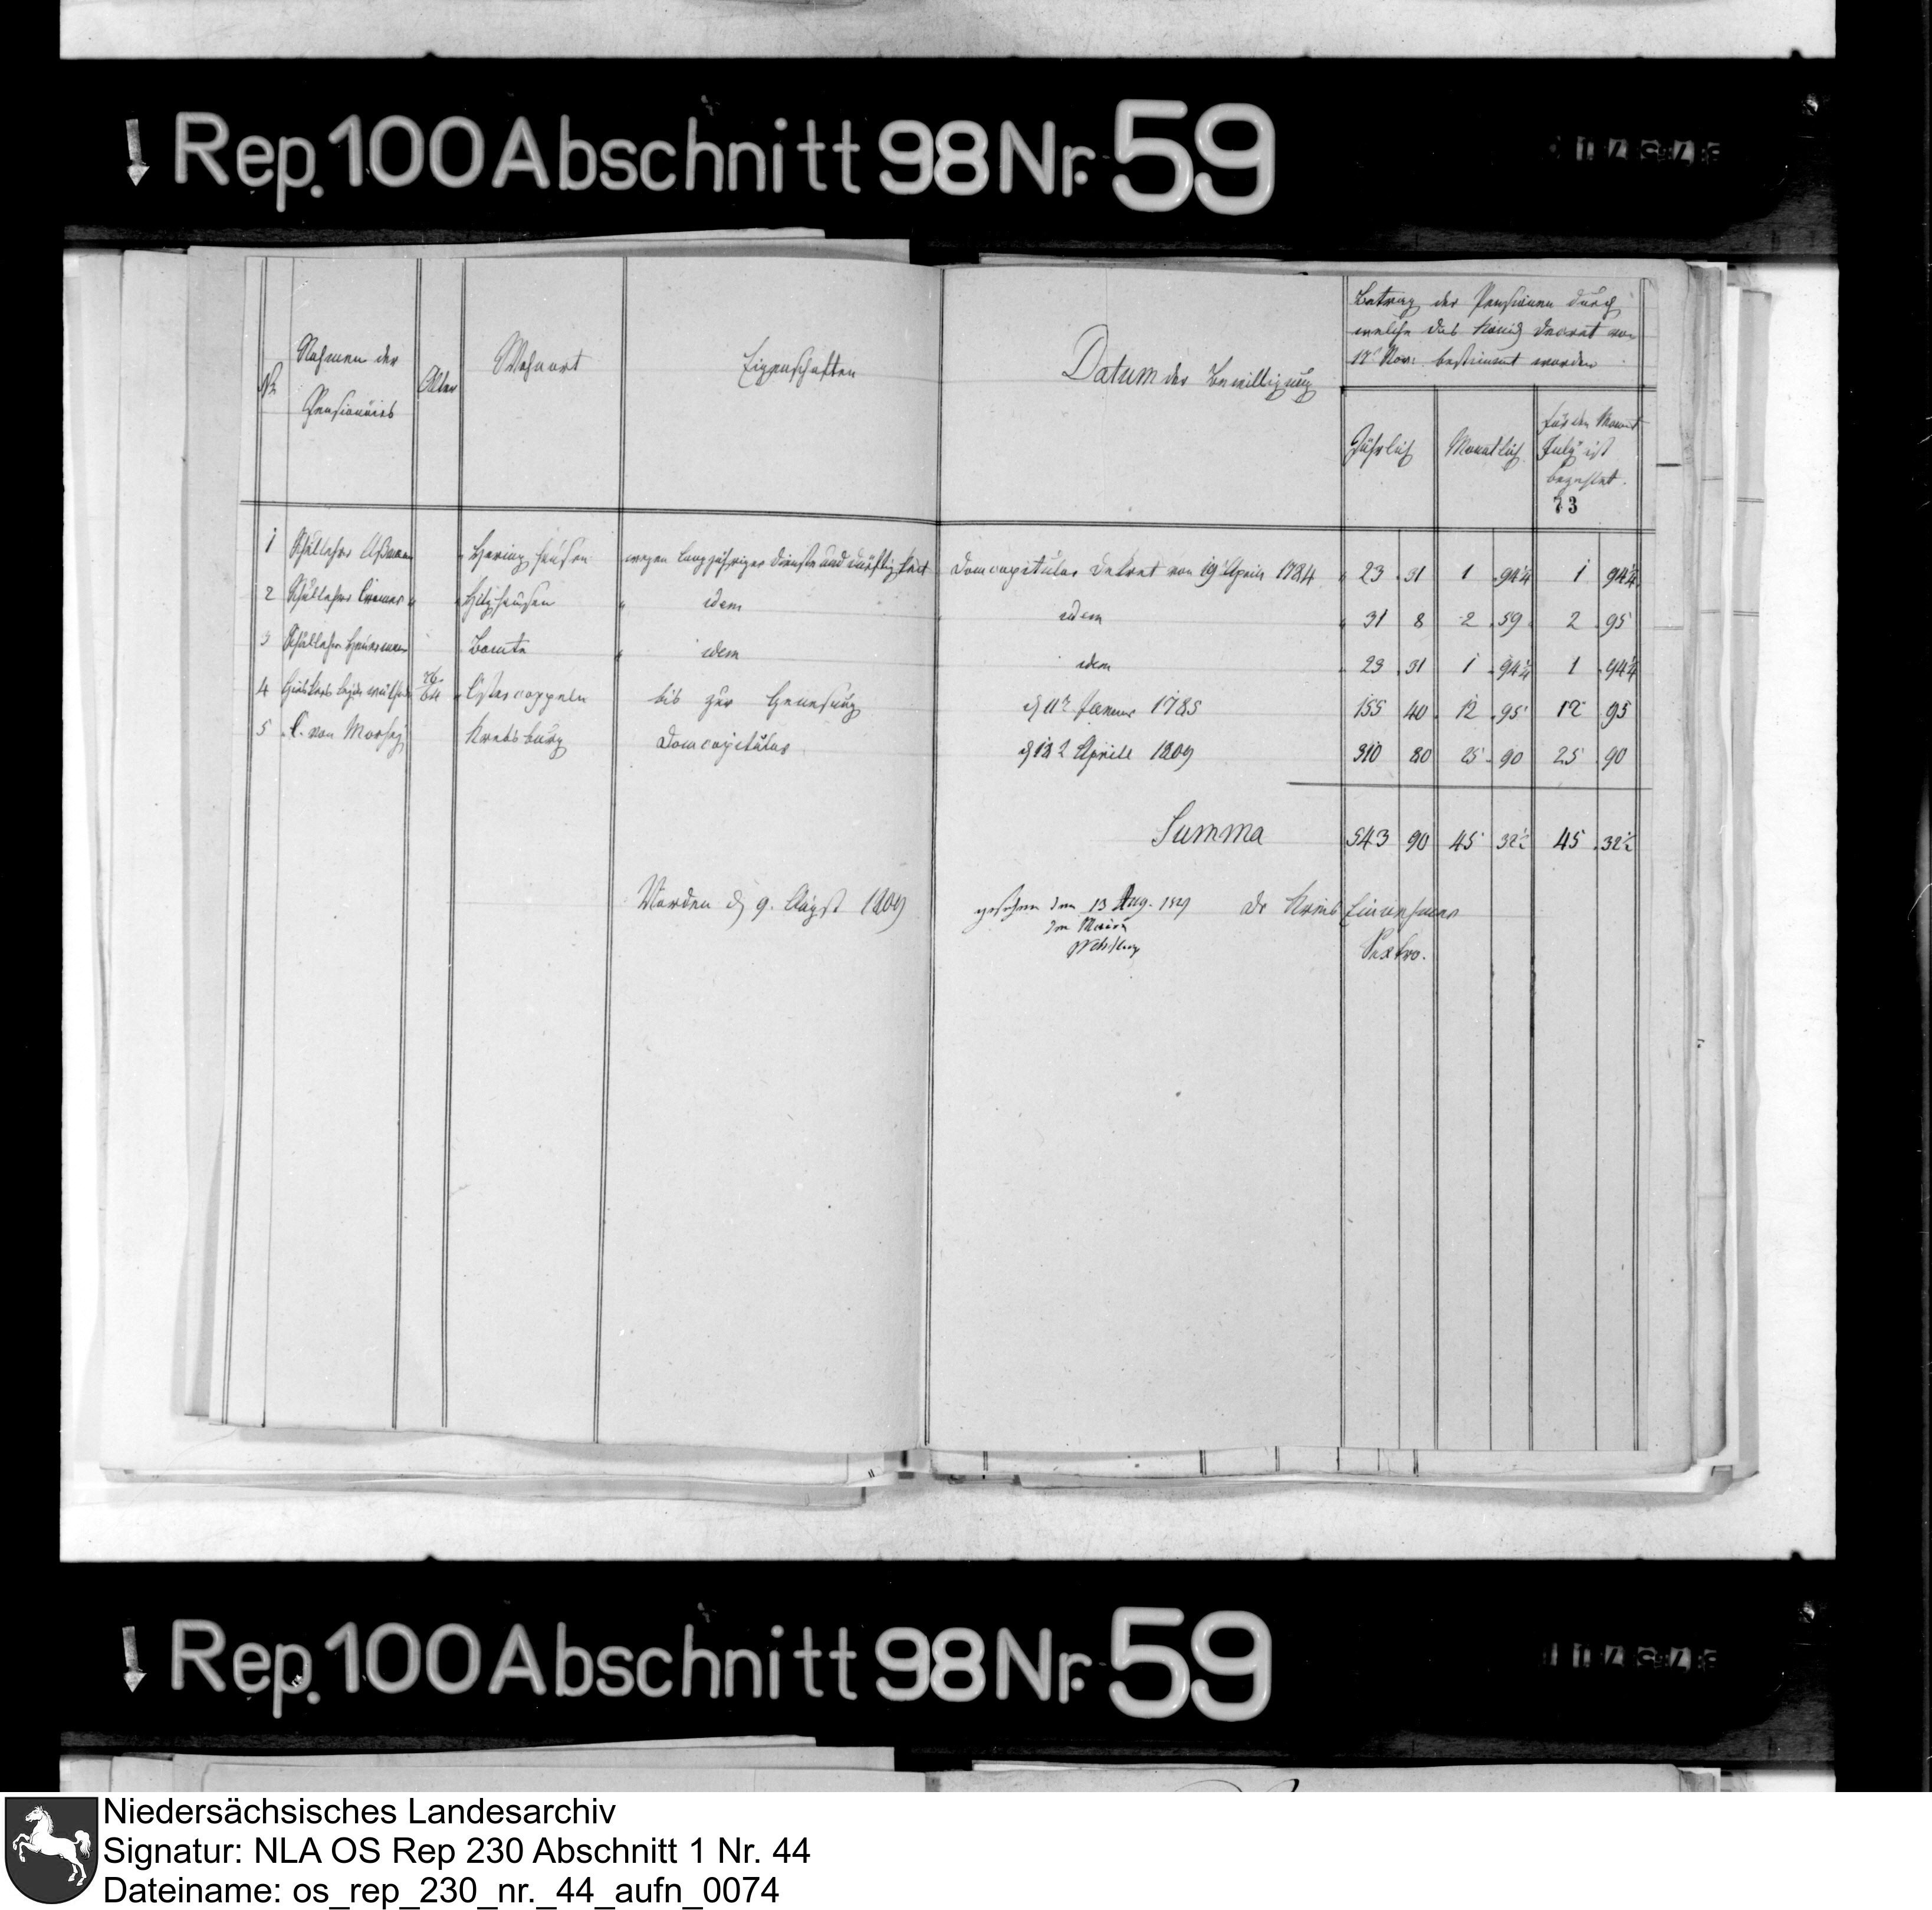 Rep. 100 Abschnitt 98 Nr. 59
Nahmen der
Pensionairs
No
Alter
Wohnort
Eigenschaften
Datum der Bewilligung
Betrag der Pensionen durch
welche das Königl Decret vom
17t Nov: bestimmt worden
Jährlich
Monatlich
für den Monat
July ist
bezahlet.
73
1 Schullehrer " Heringhausen wegen langjähriger Dienste und dürftigkeit Domcapitular Dekret vom 19t Aprill 1784 " 23 . 31 1 . 94¼ 1 94¼
2 Schullehrer " " Hitzhausen " idem idem " 31 8 2 . 59 2 . 95
3 Schullehrer Bomte " idem idem " 23 . 31 1 . 94¼ 1 . 94¼
4 64 " Ostercappeln bis zur Genesung d 11t Januar 1785 155 40 . 12 . 95 12 95
5 C. von Morsey Krebsburg Domcapitular d 2 Aprill 1809 310 80 25 . 90 25 . 90
Summa 543 90 45 32½ 45 . 32½
Vörden d 9. August 1809
gesehen den 13 Aug. 1809
Der Maire
Der Kreis Einnehmer
Rep. 100 Abschnitt 98 Nr. 59
Niedersächsisches Landesarchiv
Signatur: NLA OS Rep 230 Abschnitt 1 Nr. 44
Dateiname: os_rep_230_nr._44_aufn_0074